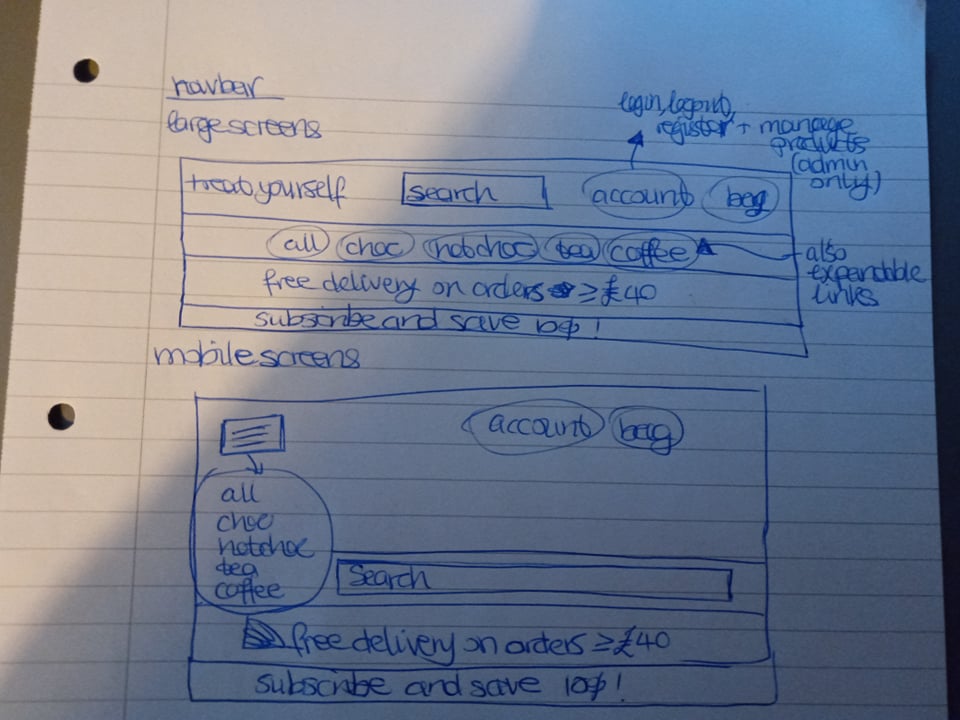 navbar
large screens
login, logout,
register + manage
products
(admin
only)
treat yourself search account bag
all choc hotchoc tea coffee
also
expandable
links
free delivery on orders ≥ £40
subscribe and save 10% !
mobile screens
account bag
all
choc
hotchoc
tea
coffee
Search
free delivery on orders ≥ £40
subscribe and save 10% !